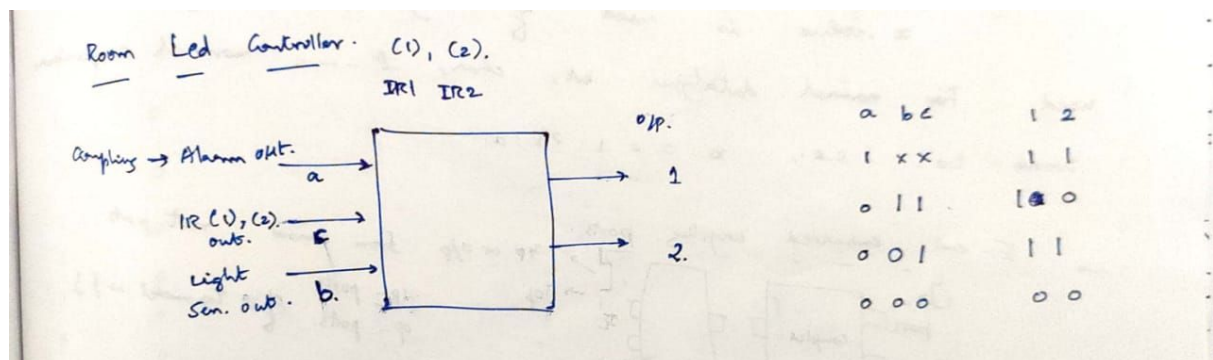 Room Led Controller. (1), (2).
IR1 IR2
Coupling → Alarm out.
a
IR (1), (2).
out.
c
Light
Sen. out.
b.
o/p.
1
2.
a b c 1 2
1 x x 1 1
0 1 1 1 0
0 0 1 1 1
0 0 0 0 0